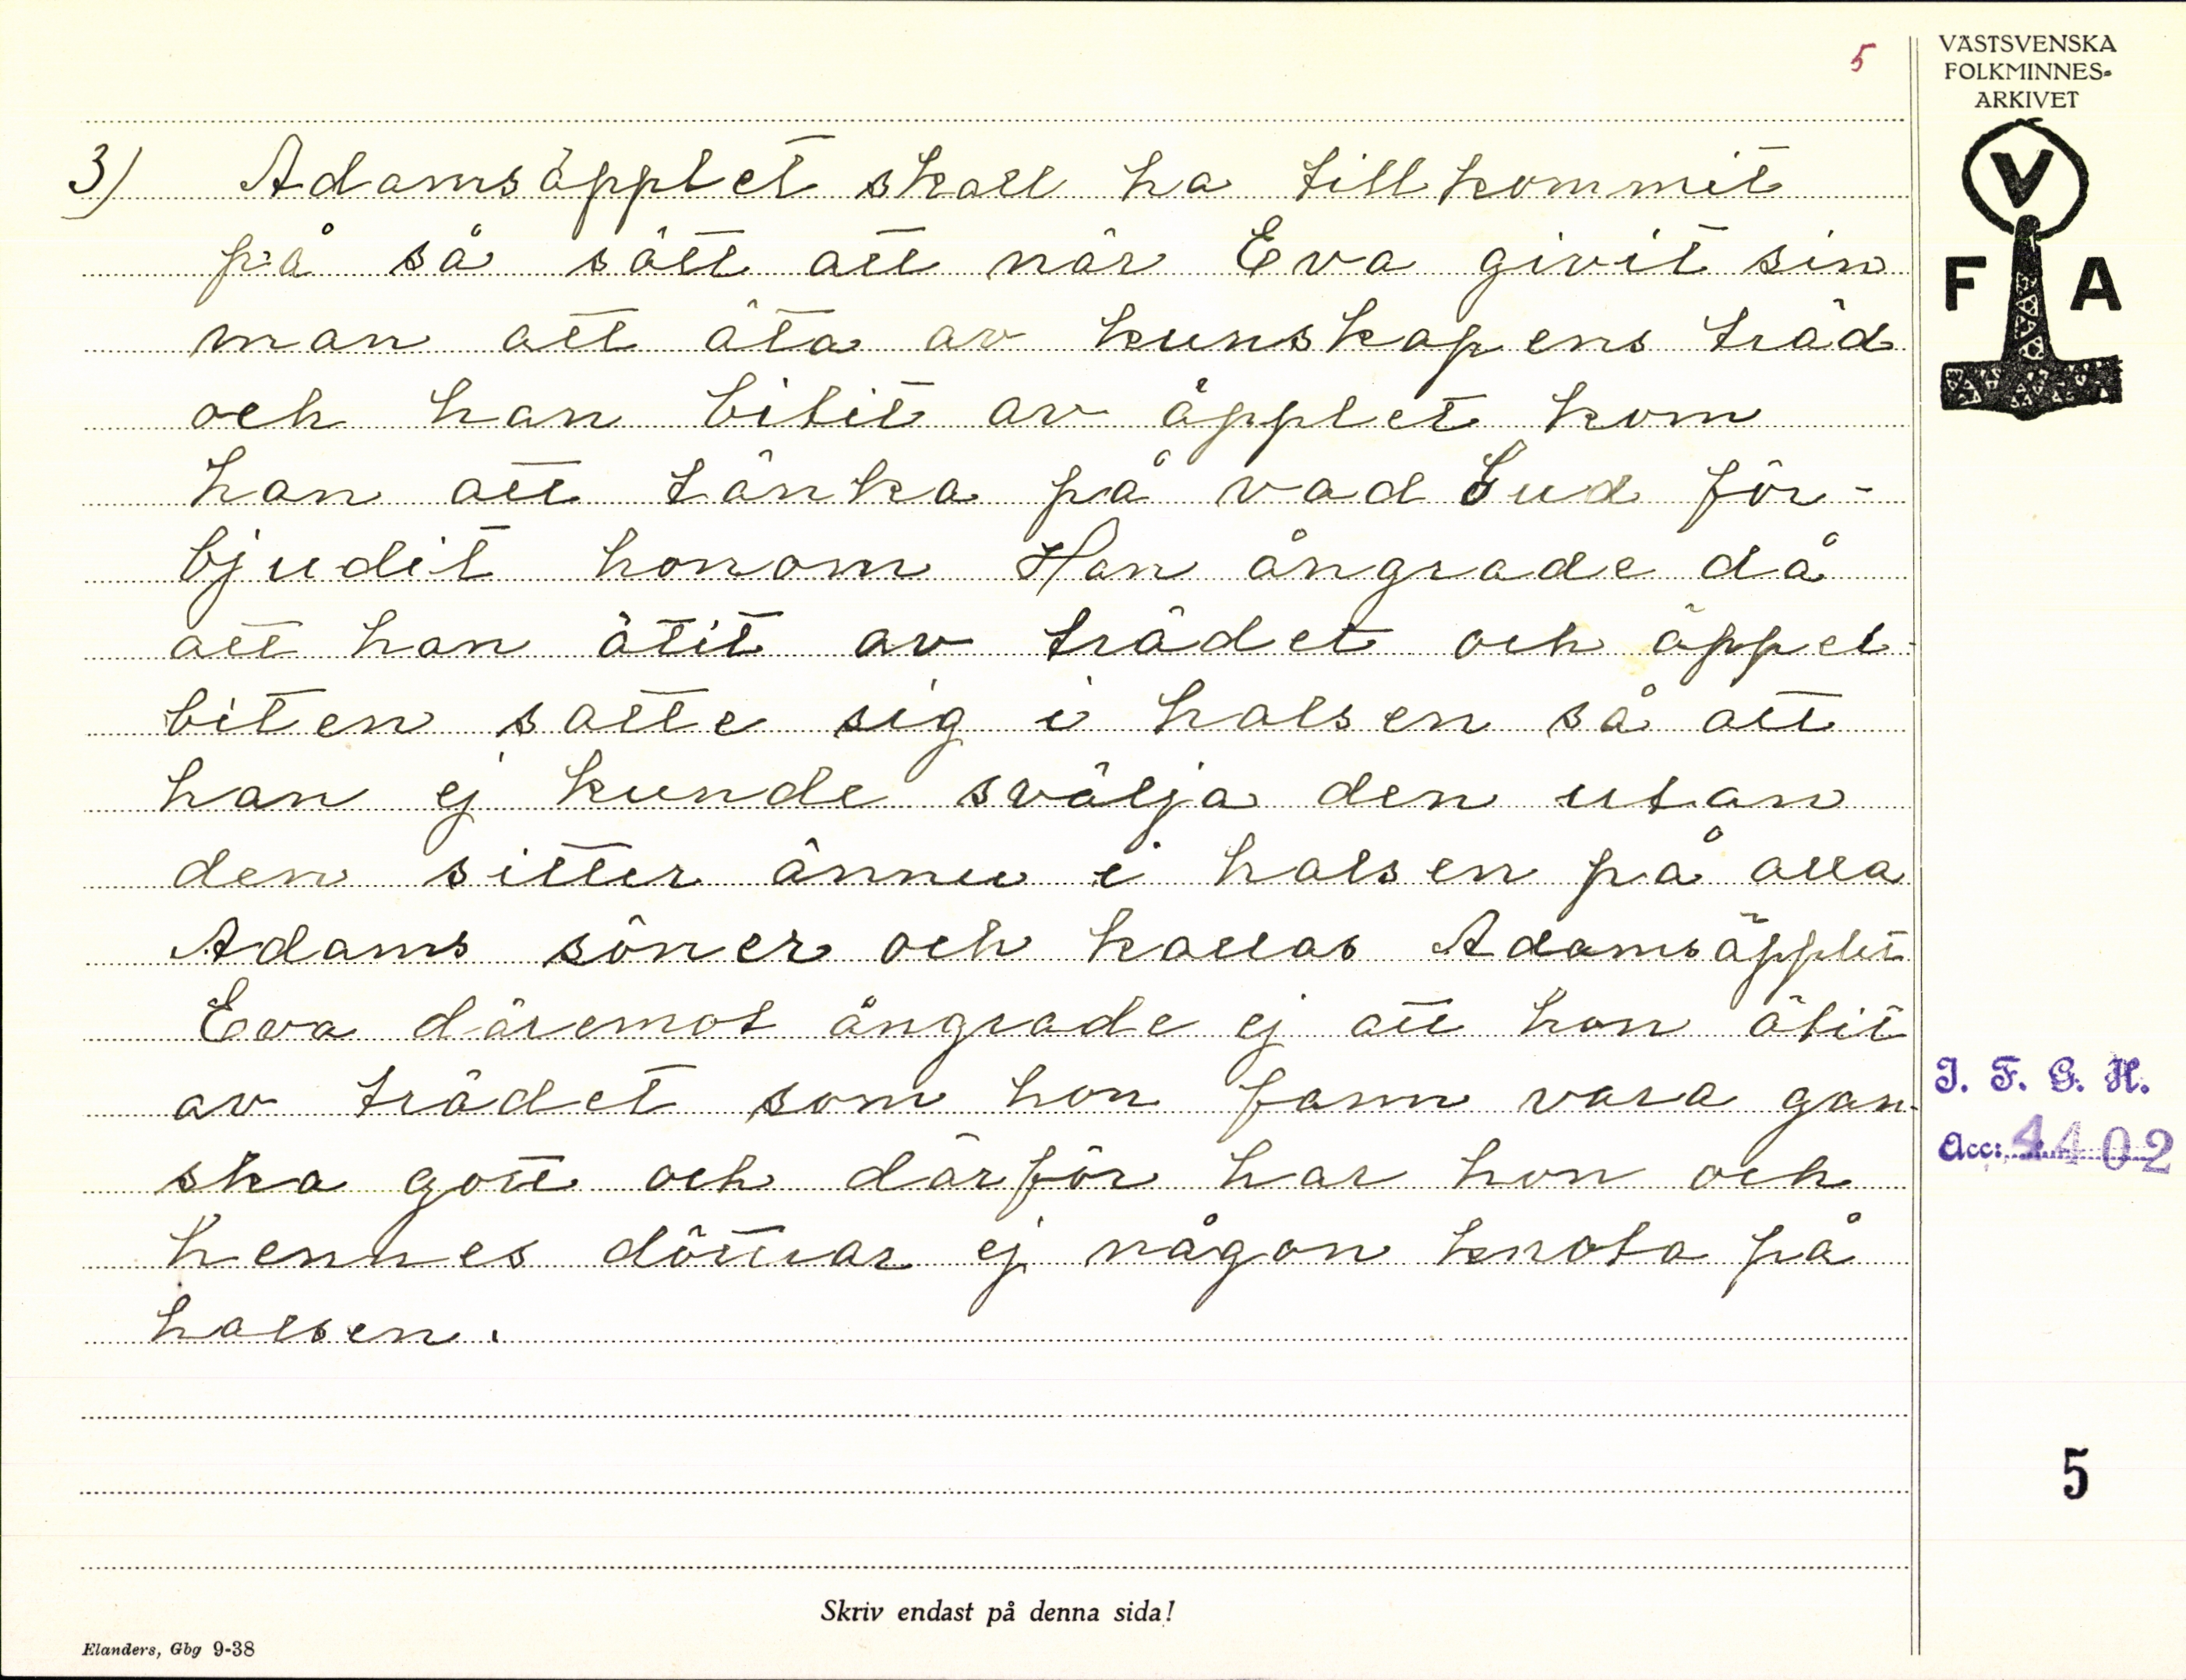 5
VÄSTSVENSKA
FOLKMINNES-
ARKIVET
V
F A
3) Adamsäpplet skall ha tillkommit
på så sätt att när Eva givit sin
man att äta av kunskapens träd
och han bitit av äpplet kom
han att tänka på vad Gud för-
bjudit honom Han ångrade då
att han ätit av trädet och äppel-
biten satte sig i halsen så att
han ej kunde svälja den utan
den sitter ännu i halsen på alla
Adams söner och kallas Adamsäpplet
Eva däremot ångrade ej att hon ätit
av trädet som hon fann vara gan-
ska gott och därför har hon och
hennes döttrar ej någon knota på
halsen.
I. F. G. H.
Acc: 4402
5
Skriv endast på denna sida!
Elanders, Gbg 9-38